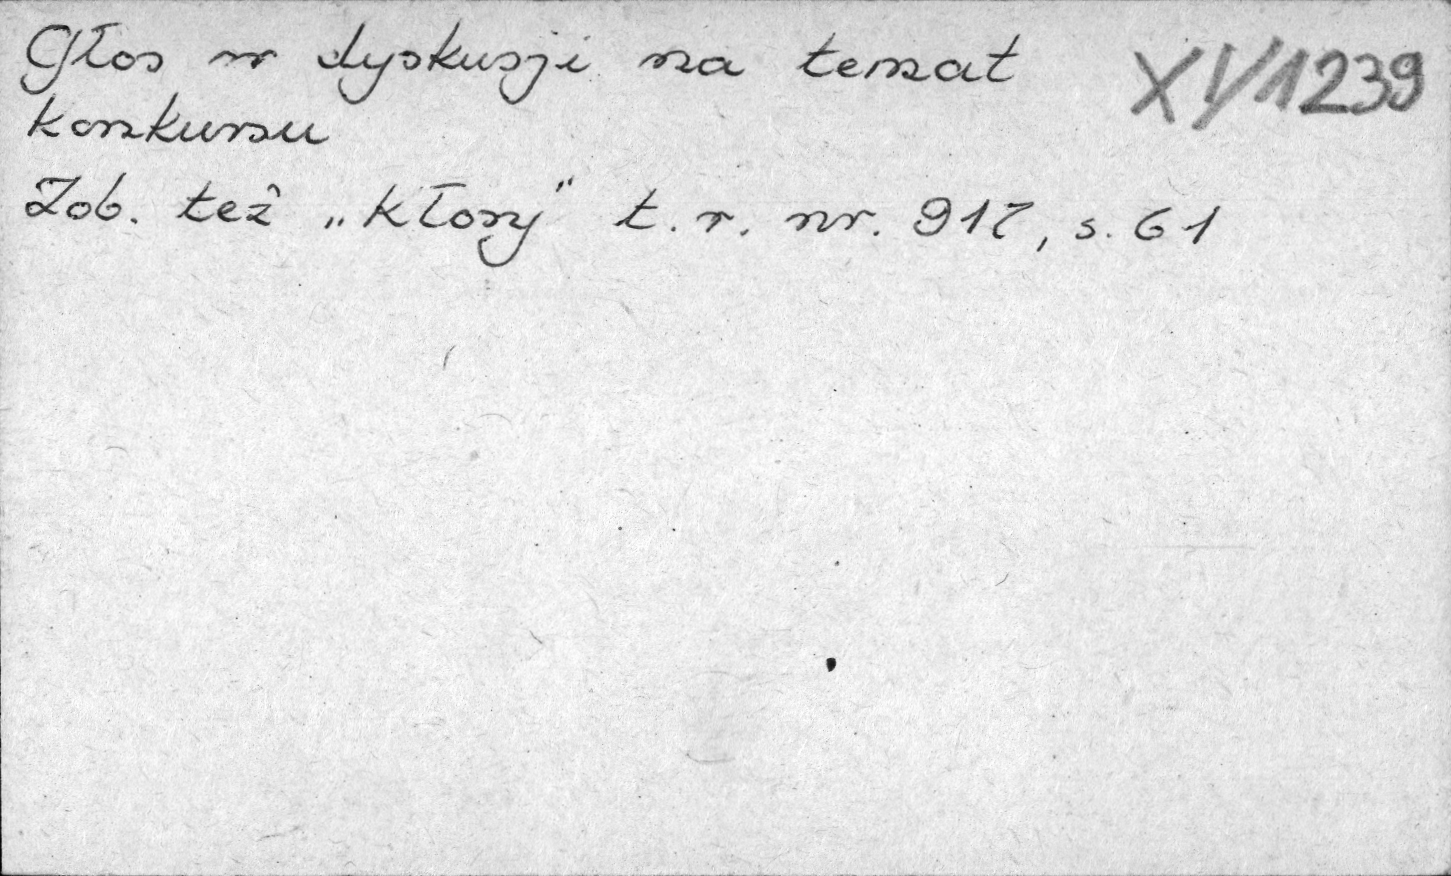 Głos w dyskusji na temat XV/1239
konkursu
Zob. też „Kłosy" t. r. nr. 917, s. 61